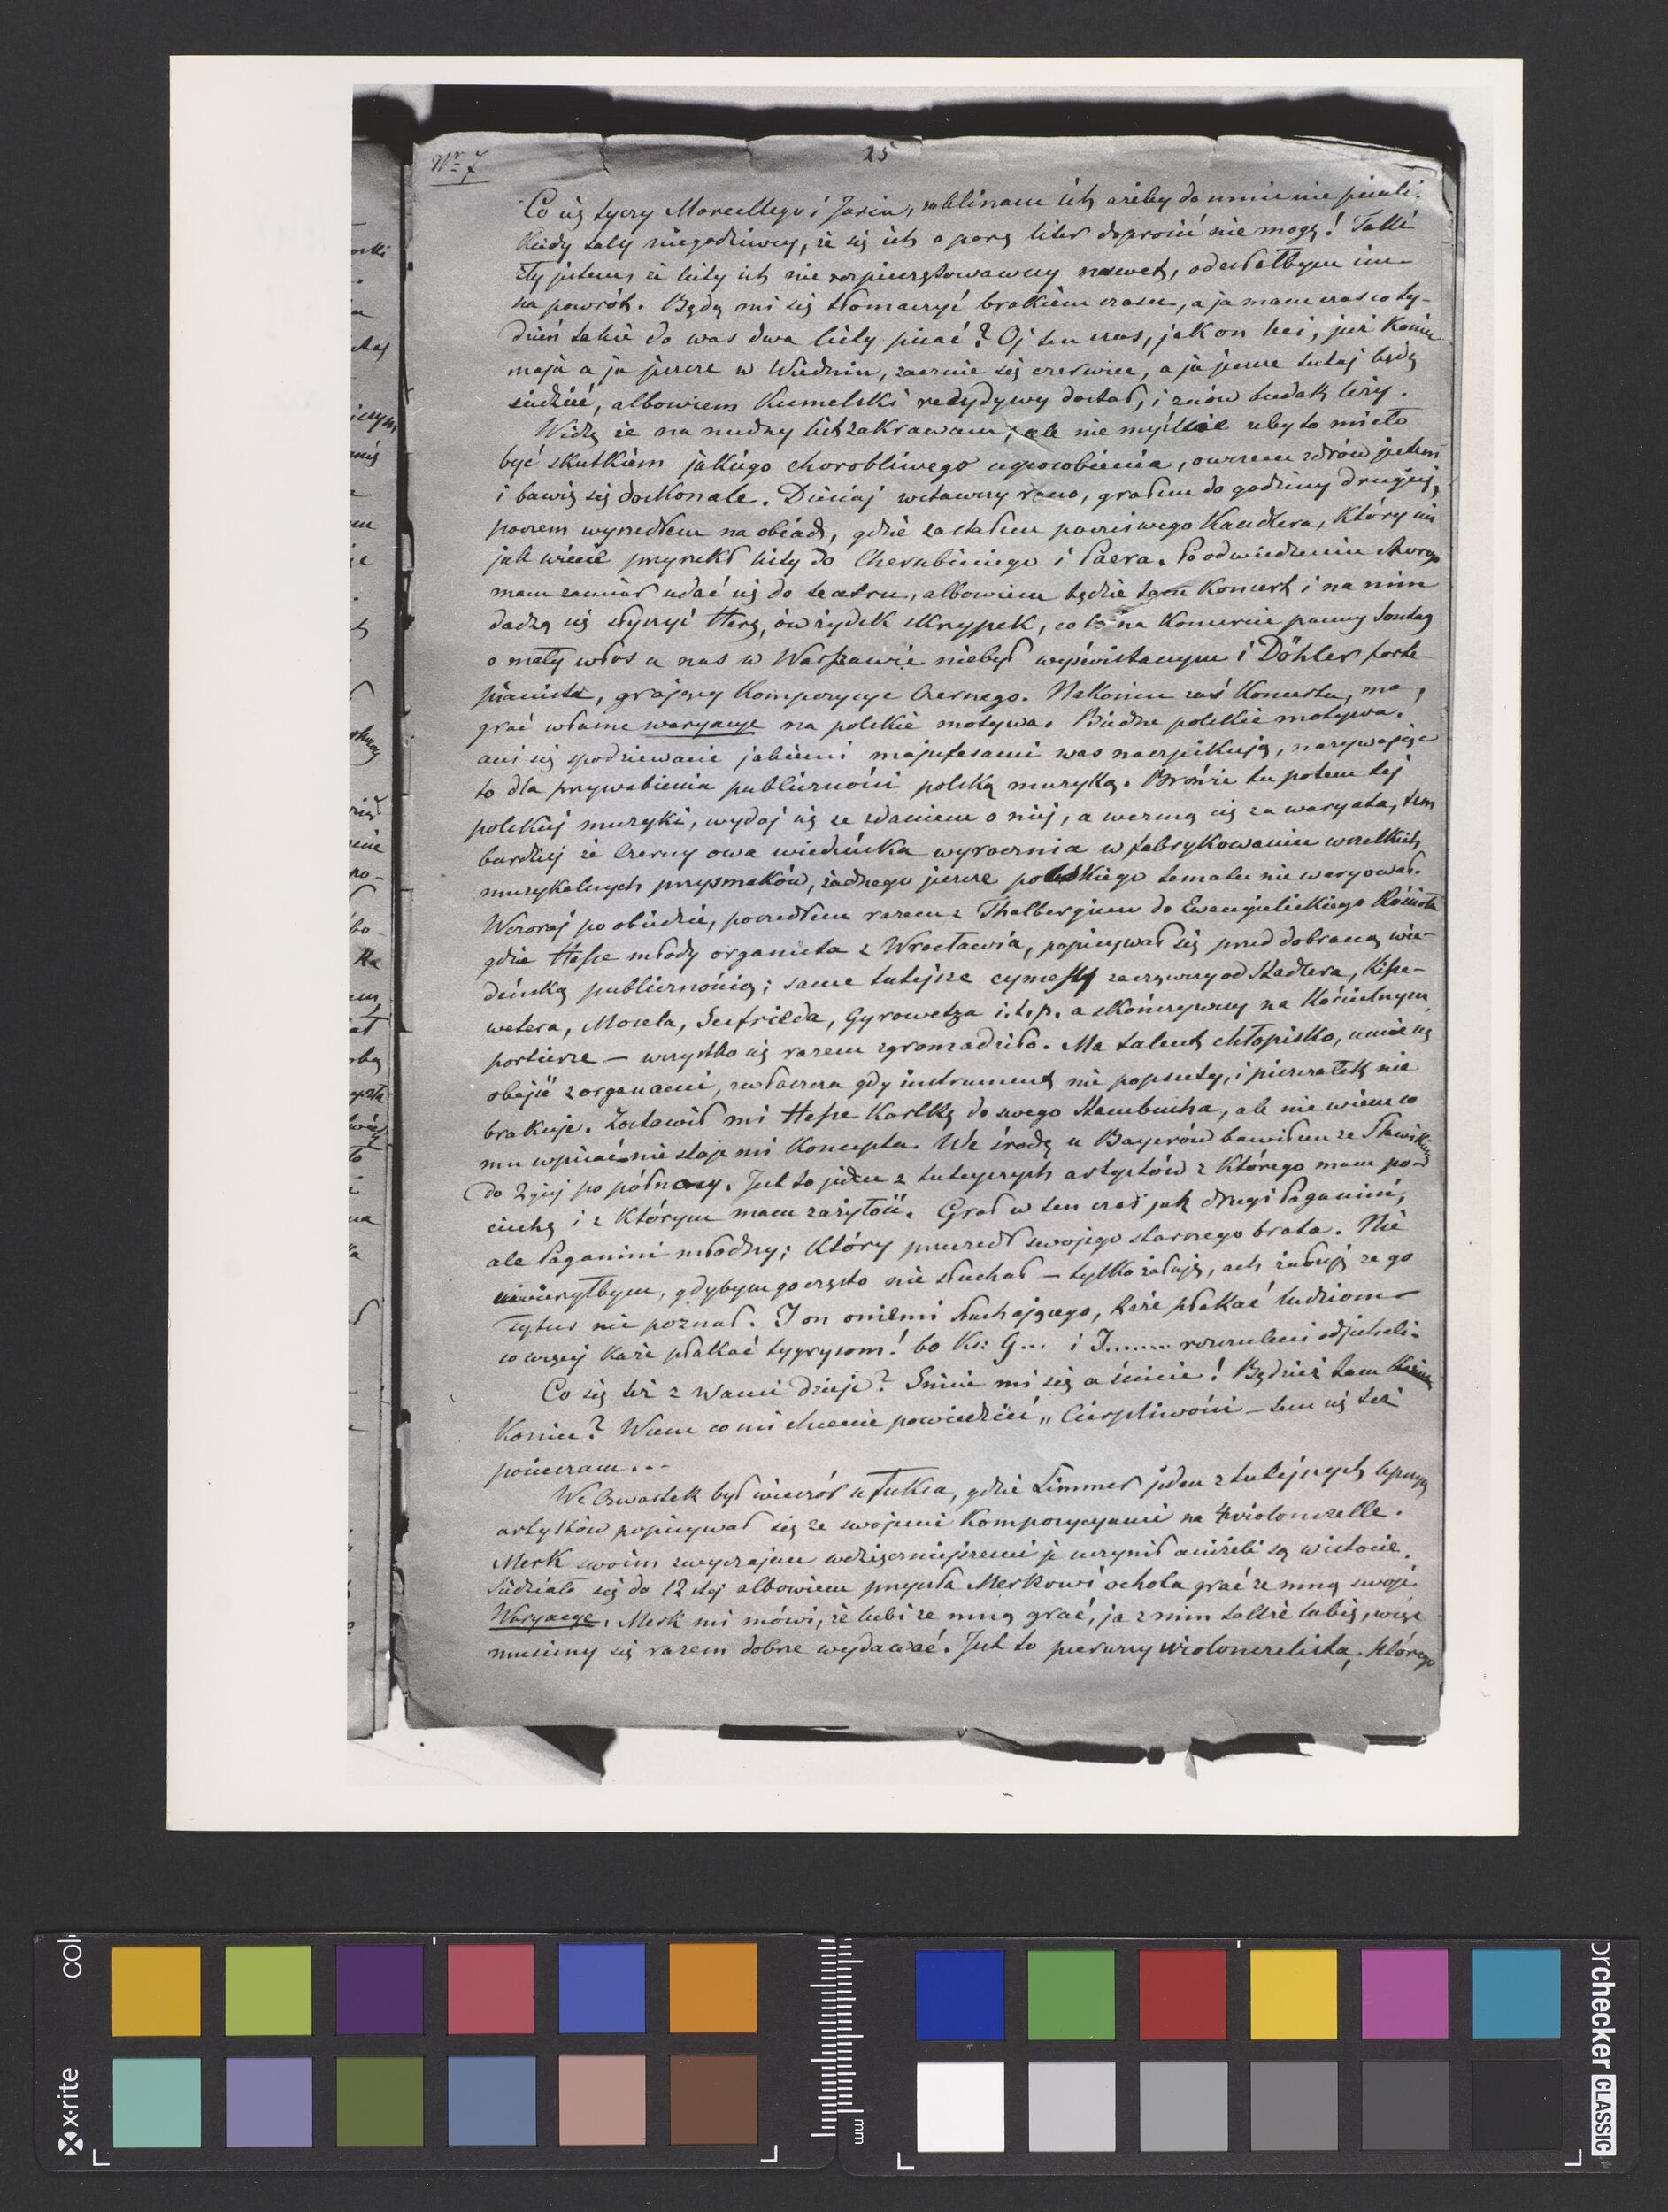 Nr 7
25
Co się tyczy Marcellego i Jasia, zaklinam ich ażeby do mnie nie pisali.
Kiedy tacy niegodziwcy, że się ich o parę liter doprosić nie mogę! Taki
zły jestem, że listy ich nie rozpieczętowawszy nawet, odesłałbym im
na powrót. Będą mi się tłomaczyć brakiem czasu, a ja mam czas co ty-
dzień takie do was dwa listy pisać? Oj ten czas, jak on leci, już koniec
maja a ja jeszcze w Wiedniu, zacznie się czerwiec, a ja jeszcze tutaj będę
siedzieć, albowiem Kumelski recydywy dostał, i znów biedak leży.
Widzę że na nudny list zakrawam, ale nie myślcie żeby to miało
być skutkiem jakiego chorobliwego usposobienia, owszem zdrów jestem
i bawię się doskonale. Dzisiaj wstawszy rano, grałem do godziny drugiej,
poczem wyszedłem na obiad, gdzie zastałem poczciwego Kandlera, który mi
jak wiecie przyrzekł listy do Cherubiniego i Paera. Po odwiedzeniu chorego
mam zamiar udać się do teatru, albowiem będzie tam koncert i na nim
dadzą się słyszyć Herz, ów żydek skrzypek, co to na koncercie panny Sontag
o mały włos u nas w Warszawie niebył wyświstanym i Döhler forte-
pianista, grający kompozycye Czernego. Nakoniec zaś koncertu, ma,
grać własne waryacye na polskie motywa. Biedne polskie motywa!
ani się spodziewacie jakiemi majufesami was naszpikują, nazywając
to dla przywabienia publiczności polską muzyką. Brońże tu potem tej
polskiej muzyki, wydaj się ze zdaniem o niej, a wezmą cię za waryata, tem
bardziej że Czerny owa wiedeńska wyrocznia w fabrykowaniu wszelkich
muzykalnych przysmaków, żadnego jeszcze polskiego tematu nie waryował.
Wczoraj po obiedzie, poszedłem razem z Thalbergiem do Ewangielickiego Kościoła
gdzie Hesse młody organista z Wrocławia, popisywał się przed dobraną wie-
deńską publicznością; same tutejsze cymesy zacząwszy od Stadlera, Kise-
wetera, Mosela, Seufrieda, Gyrowetza i.t.p. a skończywszy na kościelnym
portierze — wszystko się razem zgromadziło. Ma talent chłopisko, umie się
obejść z organami, zwłaszcza gdy instrument nie popsuty, i piszczałek nie
brakuje. Zostawił mi Hesse kartkę do swego Stambucha, ale nie wiem co
mu wpisać nie staje mi konceptu. We środę u Bayerów bawiłem ze Slawikiem
do 2giej po północy. Jest to jeden z tutejszych artystów z którego mam po-
ciechę i z którym mam zażyłość. Grał w ten czas jak drugi Paganini,
ale Paganini młodszy; który przeszedł swojego starszego brata. Nie
uwierzyłbym, gdybym go często nie słuchał — tylko żałuję, ach żałuję że go
Tytus nie poznał. I on oniemi słuchającego, każe płakać ludziom
co więcej każe płakać tygrysom! bo Ks: G... i I........ rozczuleni odjechali.
Co się też z Wami dzieje? Śnicie mi się a śnicie! Będzież tam
Koniec? Wiem co mi chcecie powiedzieć „Cierpliwości — tem się też
pocieszam...
We Czwartek był wieczór u Fuksa, gdzie Limmer jeden z tutejszych lepszych
artystów popisywał się ze swojemi kompozycyami na 4 violonczelle.
Merk swoim zwyczajem wdzięczniejszemi je uczynił aniżeli są w istocie.
Siedziało się do 12stej albowiem przyszła Merkowi ochota grać ze mną swoje
Waryacye. Merk mi mówi, że lubi ze mną grać, ja z nim także lubię, więc
musimy się razem dobrze wydawać. Jest to pierwszy wiolonczelista, którego
x-rite
colorchecker CLASSIC
mm